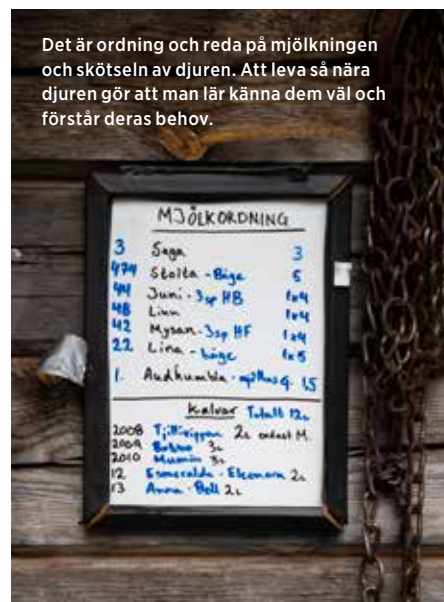 Det är ordning och reda på mjölkningen
och skötseln av djuren. Att leva så nära
djuren gör att man lär känna dem väl och
förstår deras behov.
MJÖLKORDNING
3 Saga 3
474 Stolta - Båge 5
44 Juni - 3sp HB 1x4
48 Linn 1x4
42 Mysan - 3sp HF 1x4
22 Lina - båge 1x5
1. Audhumbla 15
Kalvar Totalt 12L
2008 2L endast M.
2009 Bobbo 3L
2010 Mumin 3L
12 Esmeralda - Eleonora 2L
13 Anna - Bell 2L